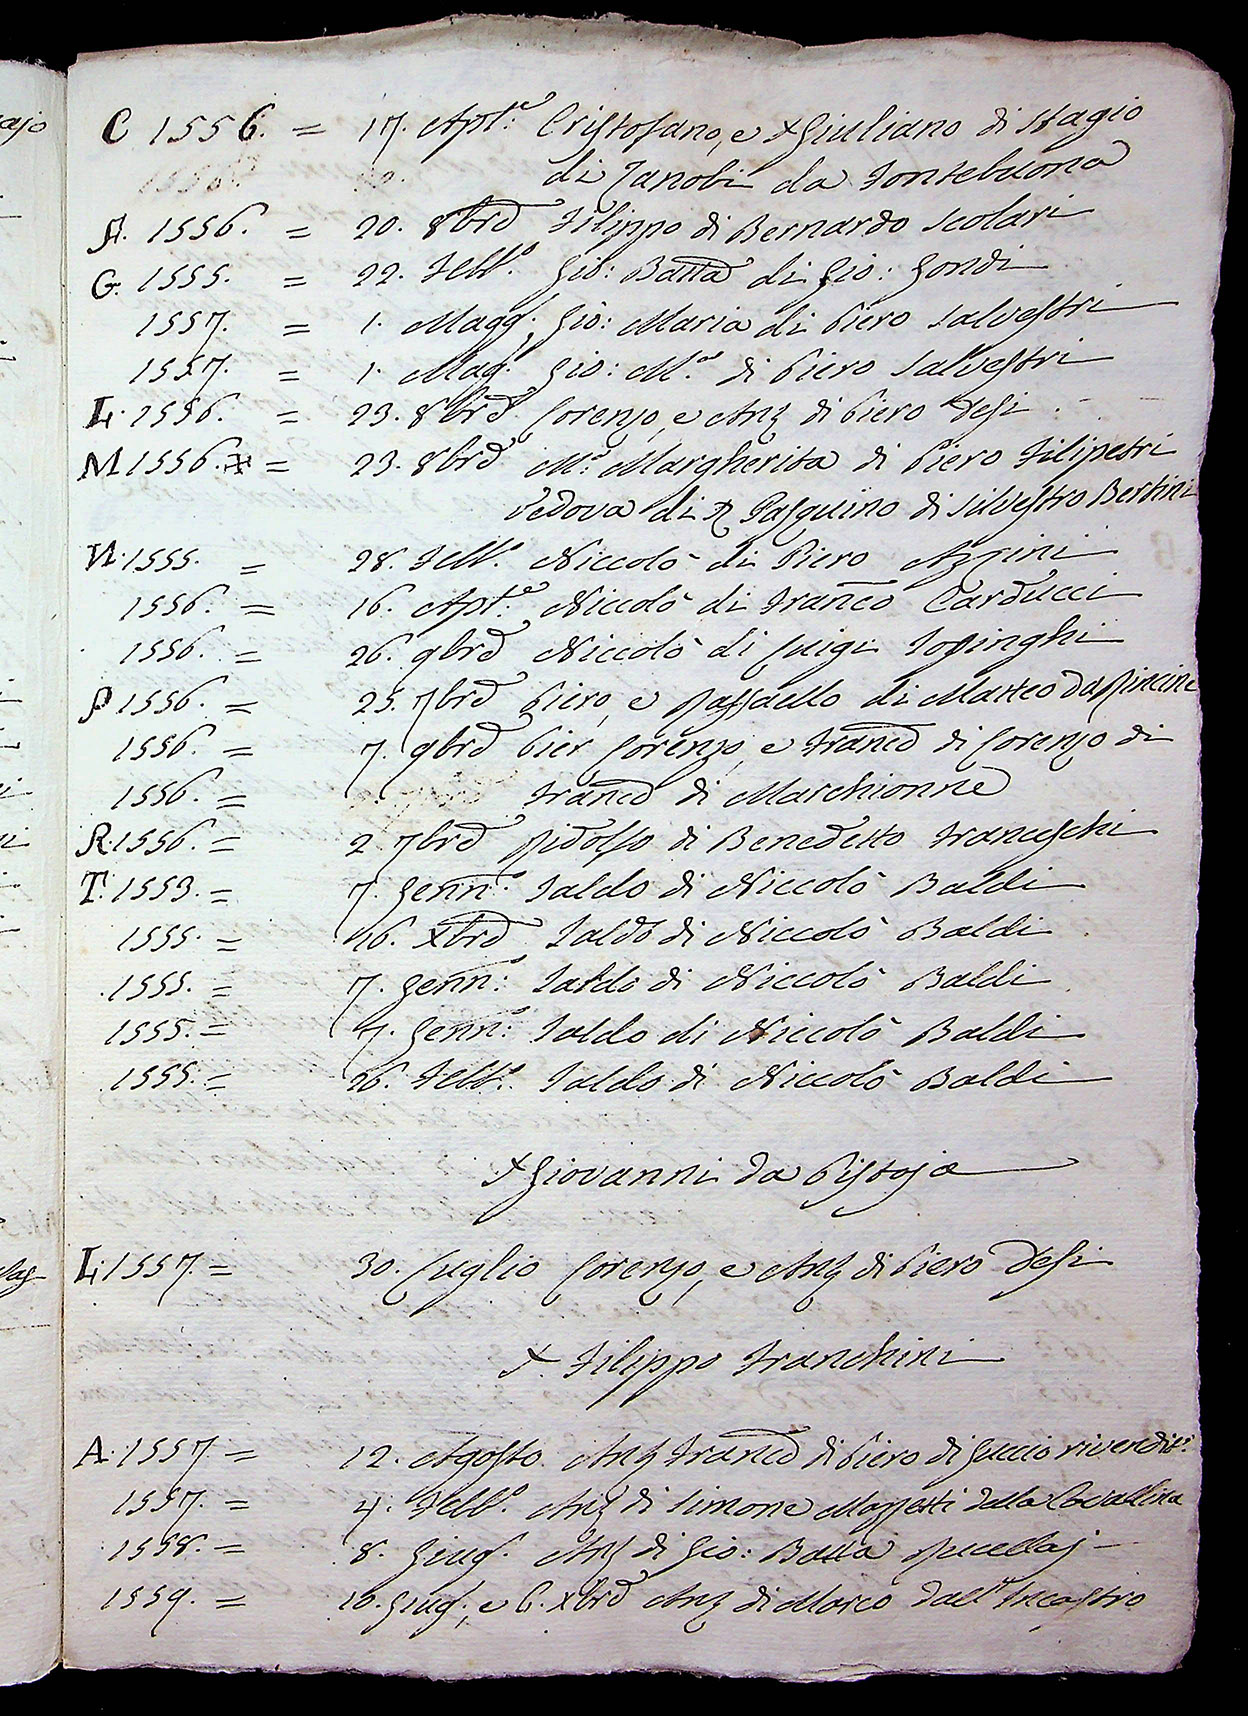 C 1556. = 17. Aple. Cristofano, e + Giuliano di Stagio
di Zanobi da Fontebuona
F. 1556. = 20. 8brē Filippo di Bernardo Scolari
G. 1555. = 22. Febb.o Gio: Batta di Gio: Gondi
1557. = 1. Magg. Gio: Maria di Piero Salvestri
1557. = 1. Mag. Gio: M.a di Piero Salvestri
L. 1556. = 23. 8brē Lorenzo, e Anz di Piero Desi
M 1556. = 23. 8brē M.a Margherita di Piero Filipetri
vedova di Pasquino di Silvestro Bertini
N. 1555. = 28. Febb.o Niccolò di Piero Azzini
1556. = 16. Aple. Niccolò di Franco Carducci
1556. = 26. 9brē Niccolò di Luigi Topinghi
P 1556. = 25. 7brē Piero, e Raffaello di Matteo da Rincine
1556. = 7. 9brē Pier Lorenzo, e Franco di Lorenzo di
1556. = Franco di Marchionne
R. 1556. = 2 7brē Ridolfo di Benedetto Franceschi
T. 1553. = 7. Genn.o Taldo di Niccolò Baldi
1555. = 16. Xbrē Taldo di Niccolò Baldi
1555. = 7. Genn: Taldo di Niccolò Baldi
1555. = 7. Genn: Taldo di Niccolò Baldi
1555. = 26. Febb.o Taldo di Niccolò Baldi
+ Giovanni da Pistoja
L. 1557. = 30. Luglio Lorenzo, e Anz di Piero Desi
+. Filippo Franchini
A. 1557 = 12. Agosto. Anz Franco di Piero di Guccio rivendit.e
1557. = 4. Febb.o Anz di Simone Mazzetti dalla Cavallina
1558. = 8. Giug. Anz di Gio: Batta Rucellaj
1559. = 10. Giug., e 6. Xbrē Anz di Marco dall'Incastro